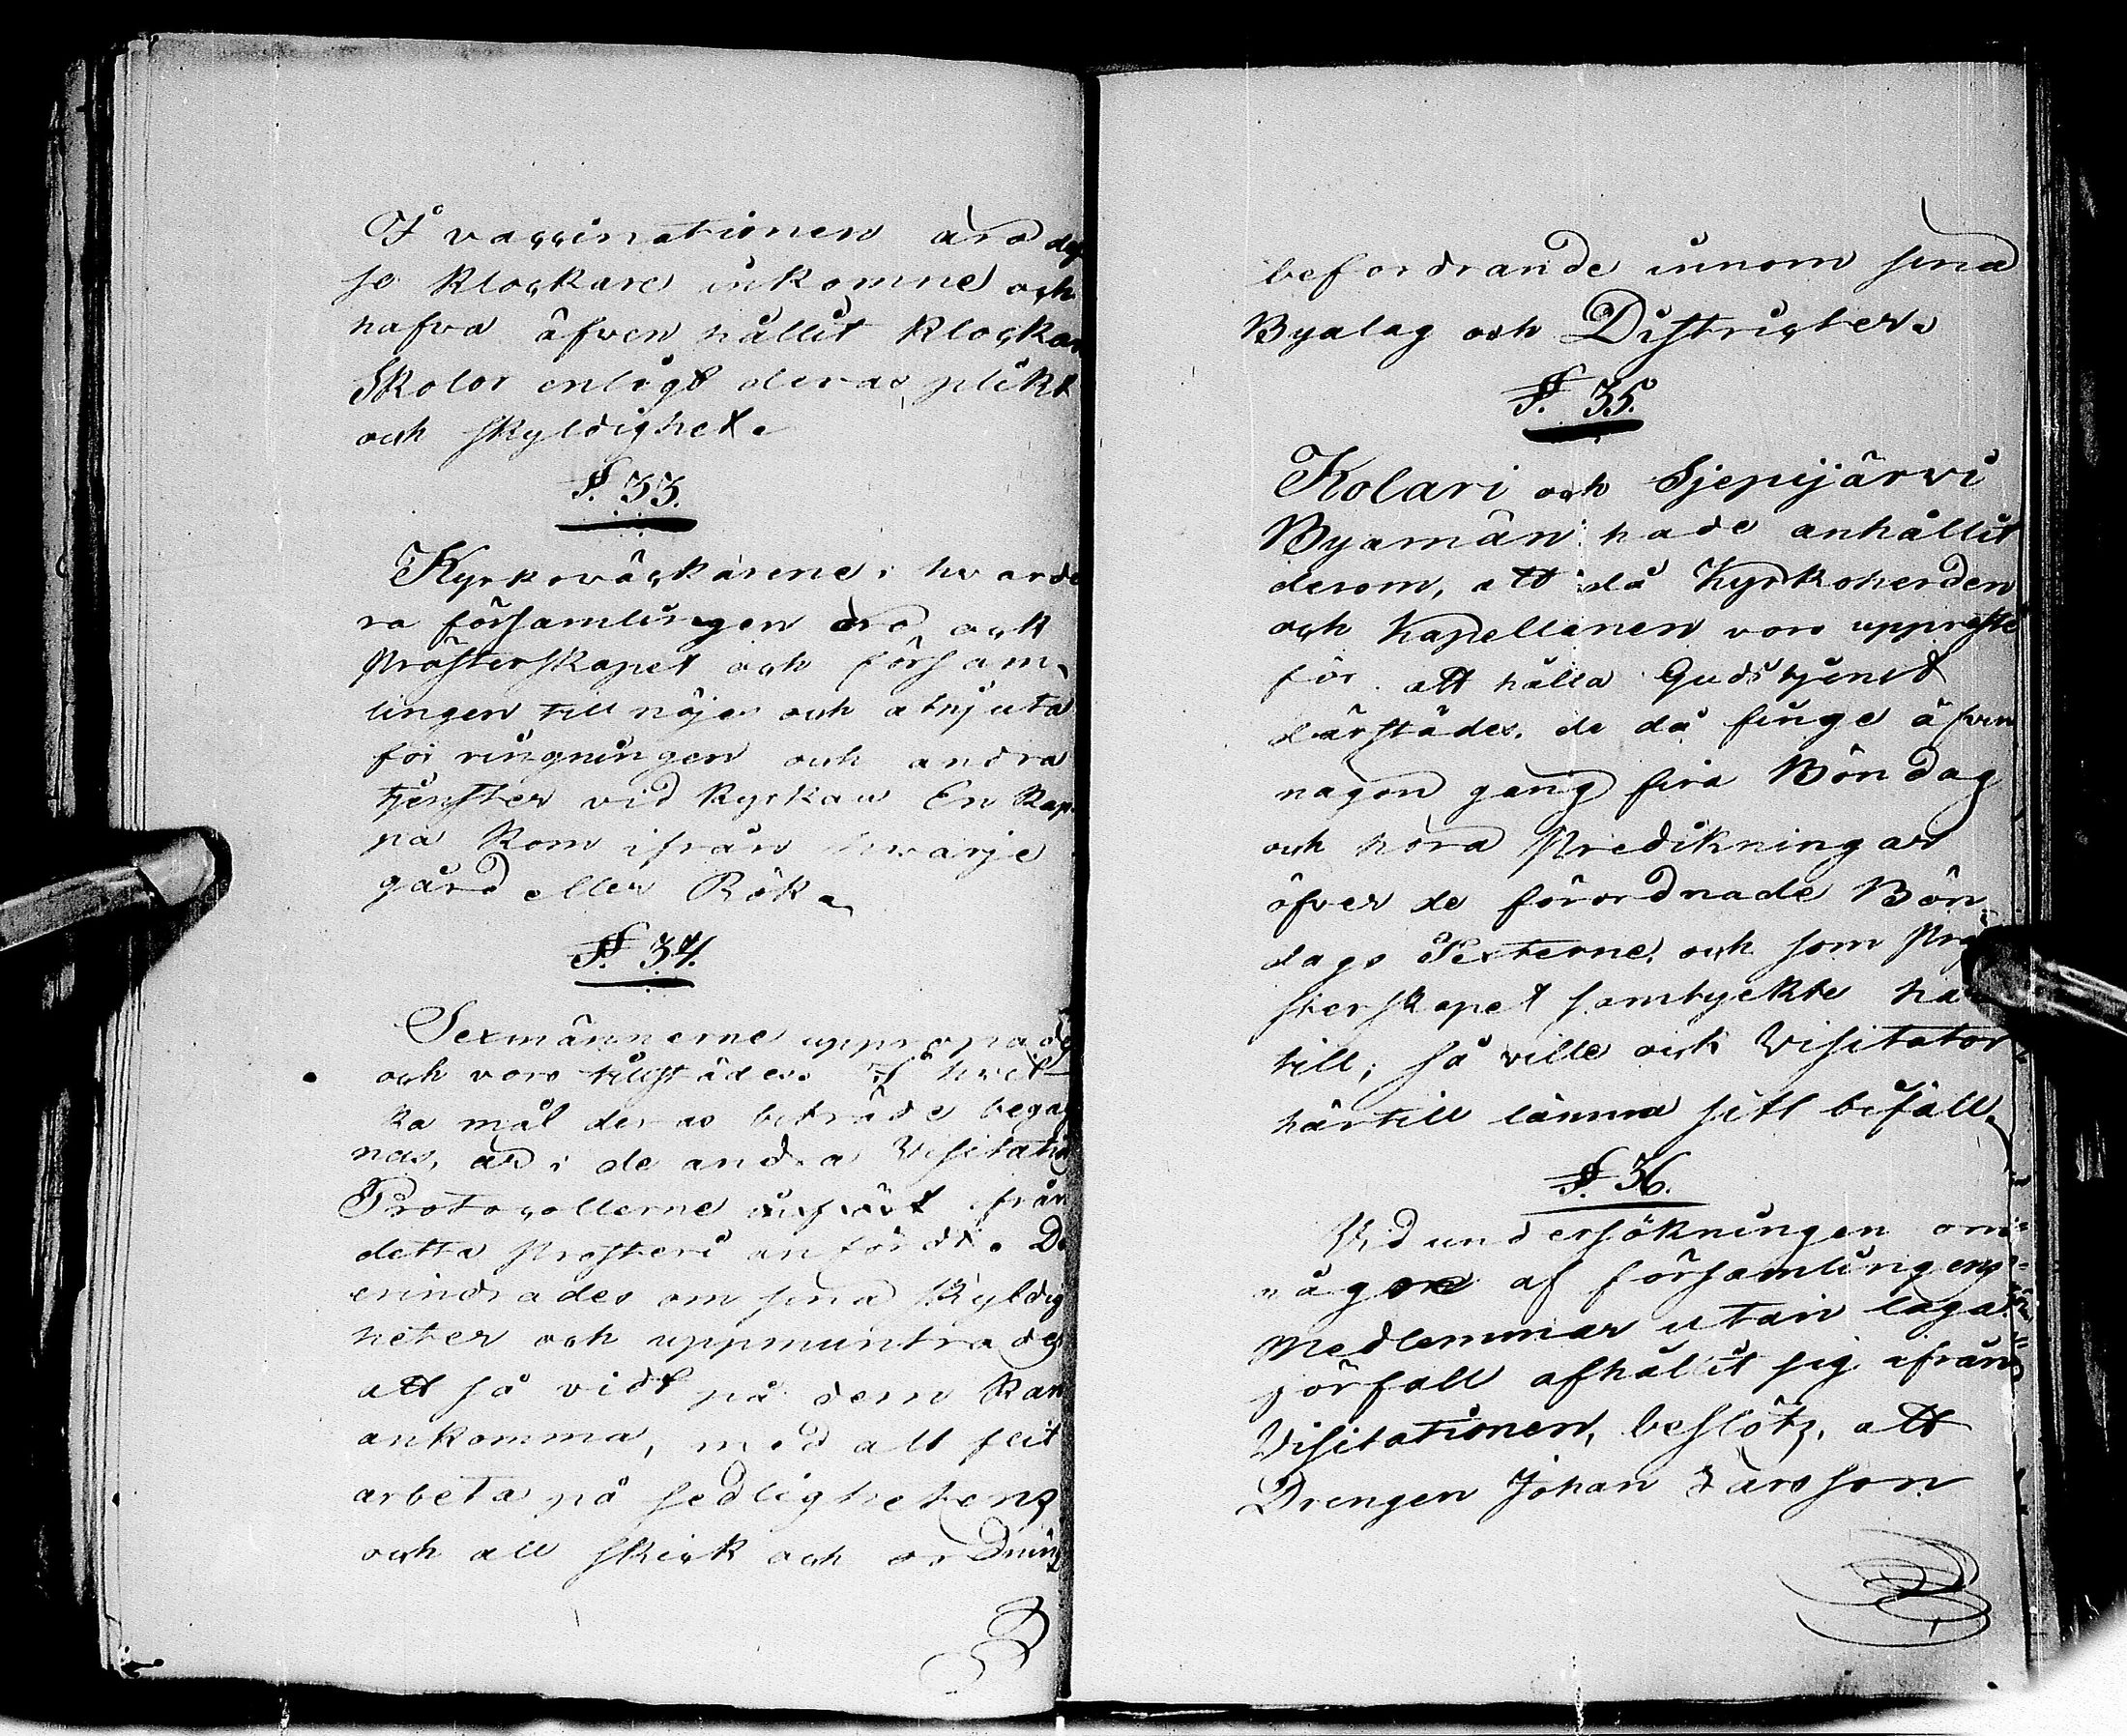 I vaccinationen äro des
se Klockare inkomne och
hafva äfven hållit Klockar
Skolor enligt deras plikt
och skyldighet.
§. 33.
Kyrkoväckarene i hvarde
ra församlingen äro ock
Prästerskapet och försam-
lingen till nöjes och atnjuta
för ringningen och andra
tjenster vid Kyrkan En Kap-
pa Korn ifrån hvarje
gård eller Rök.
§. 34.
Sexmännerne uppropades
och voro tillstädes. I hvil-
ka mål deras biträde begag
nas, är i de andra Visitations
Protocollerne infördt ifrån
detta Prosteri anfördt. De
erindrades om sina skyldig
heter och uppmuntrades
att så vidt på dem kan
ankomma, med all flit
arbeta på sedlighetens
och all skick och ordnings
befordrande innom sina
Byalag och Districter.
§. 35.
Kolari och Sjepijärvi
Byamän hade anhållit
derom, att då Kyrkoherden
och Kapellanen voro uppreste
för att hålla Gudstjenst
därstädes, de då finge äfven
någon gång fira Böndag
och höra Predikningar
öfver de förordnade Bön-
dags Texterne, och som Prä
sterskapet samtyckte här
till; så ville ock Visitator
härtill lämna sitt bifall.
§. 36.
Vid undersökningen om
någre af församlingens
Medlemmar utan laga
förfall afhållit sig ifrån
Visitationen, beslöts, att
Drengen Johan Larsson